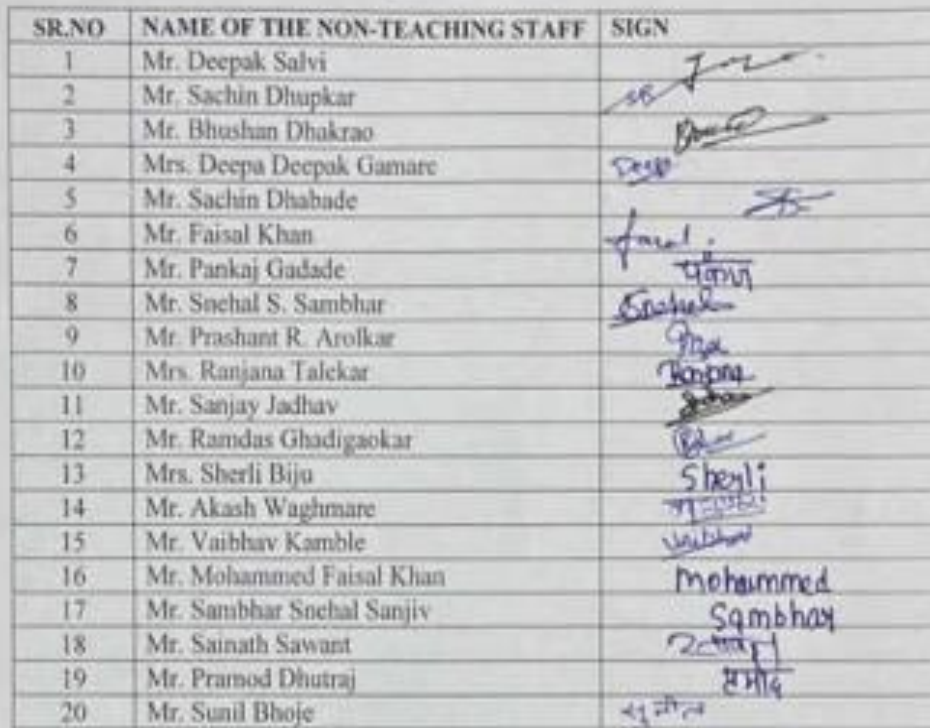 SR.NO NAME OF THE NON-TEACHING STAFF SIGN
1 Mr. Deepak Salvi
2 Mr. Sachin Dhupkar SB
3 Mr. Bhushan Dhakrao
4 Mrs. Deepa Deepak Gamare Deepa
5 Mr. Sachin Dhabade
6 Mr. Faisal Khan
7 Mr. Pankaj Gadade पंकज
8 Mr. Snehal S. Sambhar Snehal
9 Mr. Prashant R. Arolkar
10 Mrs. Ranjana Talekar Ranjana
11 Mr. Sanjay Jadhav
12 Mr. Ramdas Ghadigaokar
13 Mrs. Sherli Biju Sherli
14 Mr. Akash Waghmare
15 Mr. Vaibhav Kamble Vaibhav
16 Mr. Mohammed Faisal Khan Mohammed
17 Mr. Sambhar Snehal Sanjiv Sambhar
18 Mr. Sainath Sawant
19 Mr. Pramod Dhutraj प्रमोद
20 Mr. Sunil Bhoje सुनील